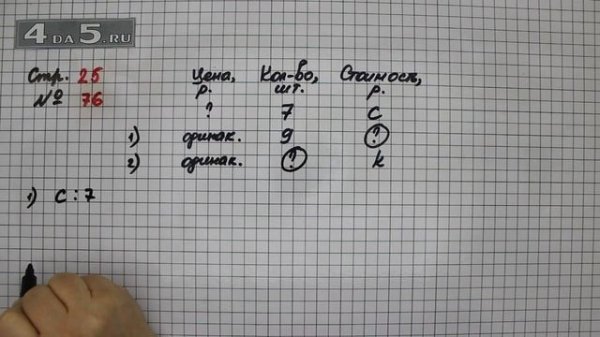 4 DA 5.RU
Стр. 25
№ 76
Цена, Кол-во, Стоимость,
р. шт. р.
? 7 с
1) одинак. 9 ?
2) одинак. ? k
1) с : 7